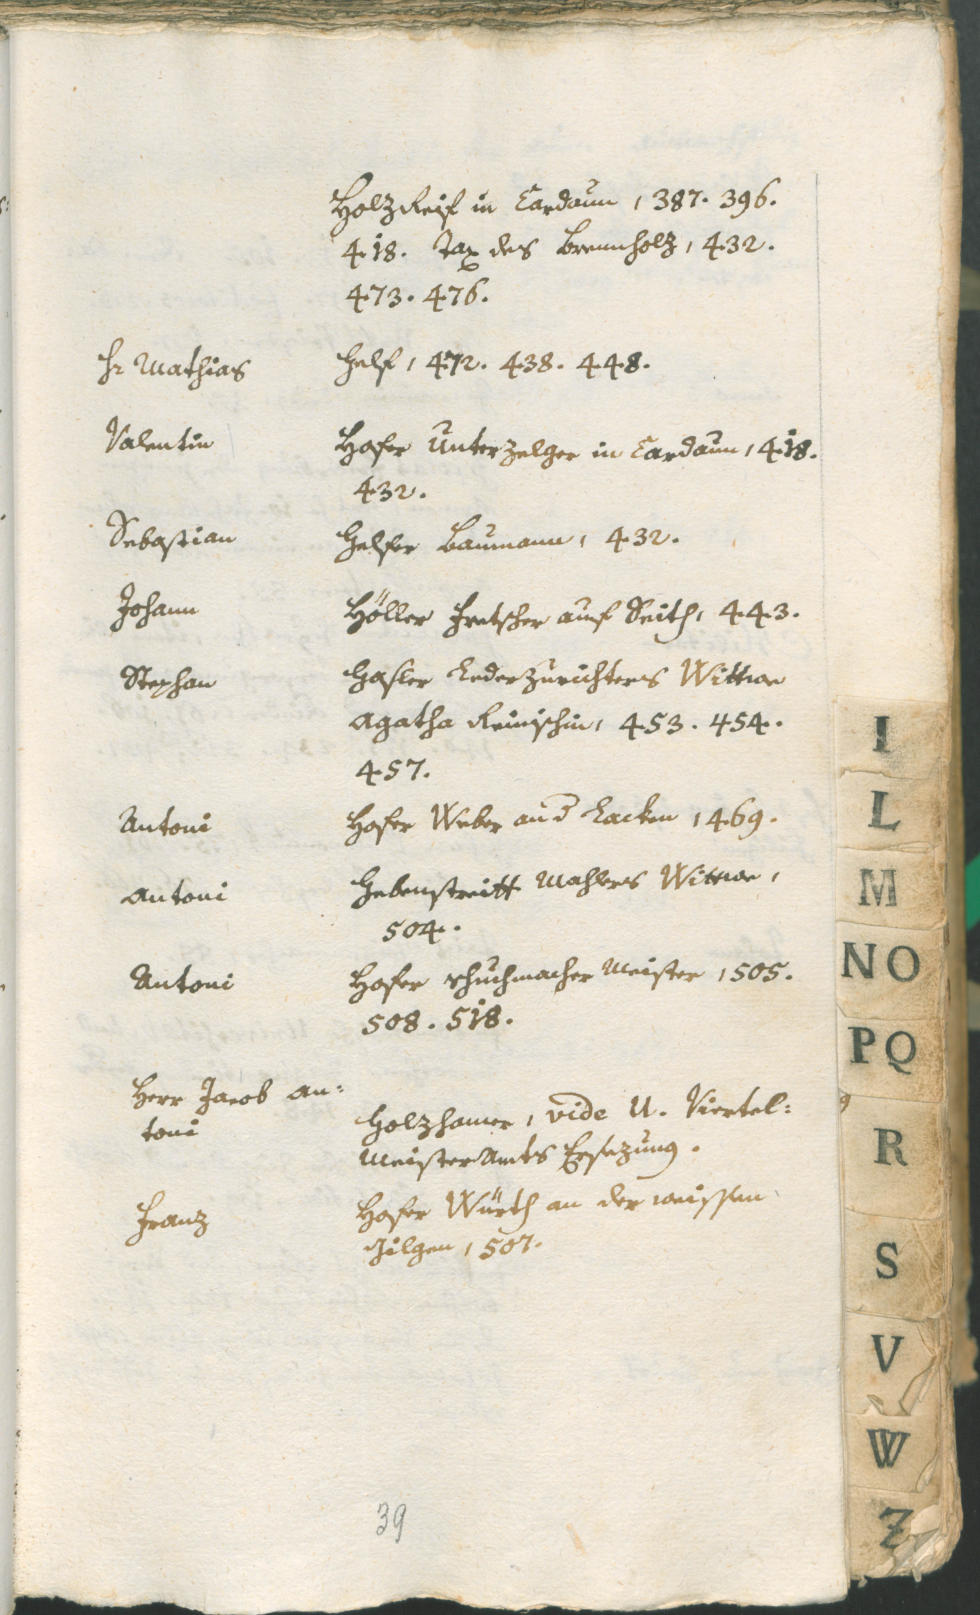 Holzreif in Cardaun, 387. 396.
418. Tax des Brennholz, 432.
473. 476.
Hr Mathias Helf, 472. 438. 448.
Valentin Hofer Unterzelger in Cardaun, 418.
432.
Sebastian Helfer Baumann, 432.
Johann Höller Fretscher auf Seith, 443.
Stephan Hasler Lederzurichters Wittwe
Agatha Reinischin, 453. 454.
457.
Antoni Hofer Weber an d Lacken, 469.
Antoni Hebenstreitt Mahlers Wittwe,
504.
Antoni Hofer Schuchmacher Meister, 505.
508. 518.
Herr Jacob An:
toni Holzhamer, vide U. Viertel:
Meister Amts Ersezung.
Franz Hofer Würth an der weissen
Gilgen, 507.
39
I
L
M
N O
P Q
R
S
V
W
Z